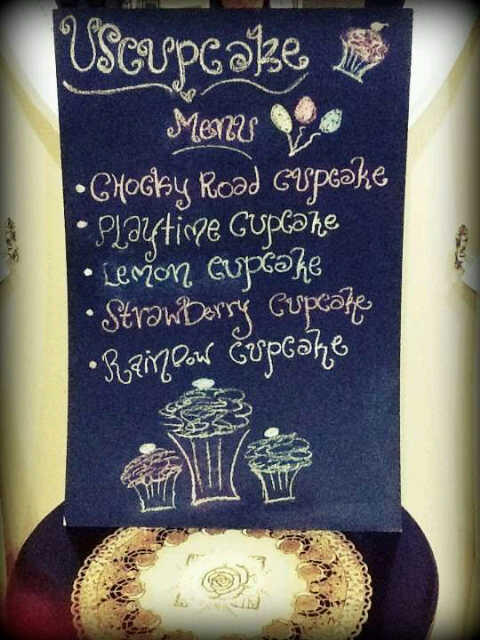 UScupcake
Menu
• Chocky Road Cupcake
• Playtime Cupcake
• Lemon Cupcake
• Strawberry Cupcake
• Rainbow Cupcake